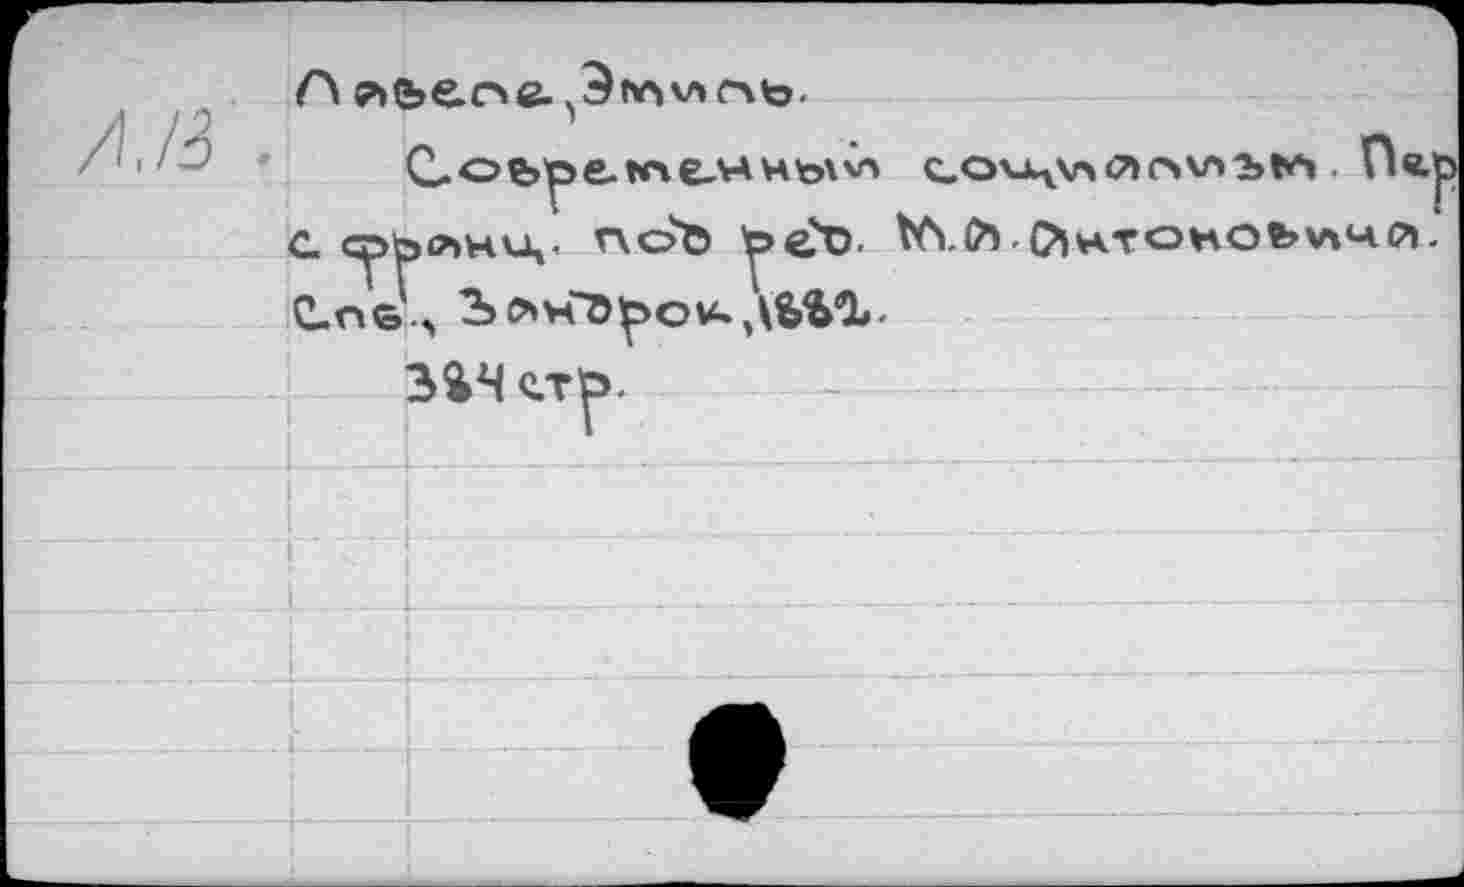 Л.13.
Лавеле, Эмиль.
Современный социализм. Пер
с франц. подъ ред. М.А. Антоновича.
Спб., Зандрок, 1882.
384 стр.